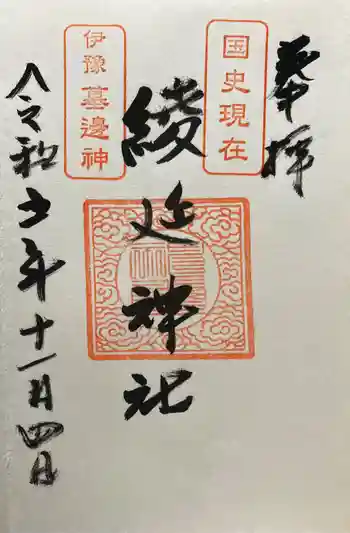 奉拝
国史現在
綾延神社
伊豫 墓邊神
令和五年十一月四日